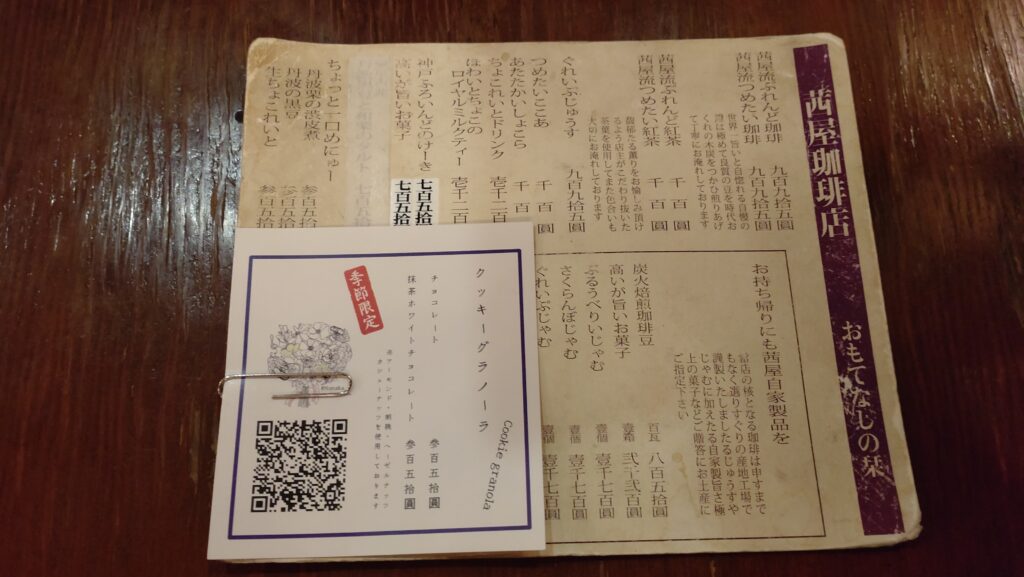 茜屋珈琲店
おもてなしの栞
茜屋流ぶれんど珈琲 九百九拾五圓
茜屋流つめたい珈琲 九百九拾五圓
世界一旨いと自惚れる自慢の
くれの木炭をつかひ煎りあげ
て丁寧にお淹れしております
茜屋流ぶれんど紅茶 千百圓
茜屋流つめたい紅茶 千百圓
馥郁たる薫りをお愉しみ頂け
るよう店主がこだわり抜いた
茶葉を使用してまた色合いも
大切にお淹れしております
ぐれいぷじゅうす 九百九拾五圓
つめたいここあ 千百圓
あたたかいしょこら 千百圓
ちょこれいとドリンク 壱千二百
ほわいとちょこの
ロイヤルミルクティー 壱千二百
神戸ふろいんどのけーき 七百五拾
高いが旨いお菓子 七百五拾
ちょっと一口めにゅー
丹波栗の渋皮煮 参百五拾
丹波の黒豆 参百五拾
生ちょこれいと 参百五拾
お持ち帰りにも茜屋自家製品を
當店の核となる珈琲は申すまで
もなく選りすぐりの産地工場で
謹製いたしましたるじゅうすや
じゃむに加えたる自家製旨さ極
上の菓子などご贈答にお土産に
ご指定下さい
炭火焙煎珈琲豆 百瓦 八百五拾圓
高いが旨いお菓子
ぶるうべりいじゃむ 壹個 壱千七百圓
さくらんぼじゃむ 壹個 壱千七百圓
ぐれいぷじゃむ 壹個 壱千七百圓
クッキーグラノーラ
Cookie granola
チョコレート 参百五拾圓
抹茶ホワイトチョコレート 参百五拾圓
※アーモンド・胡桃・ヘーゼルナッツ
カシューナッツを使用しております
季節限定